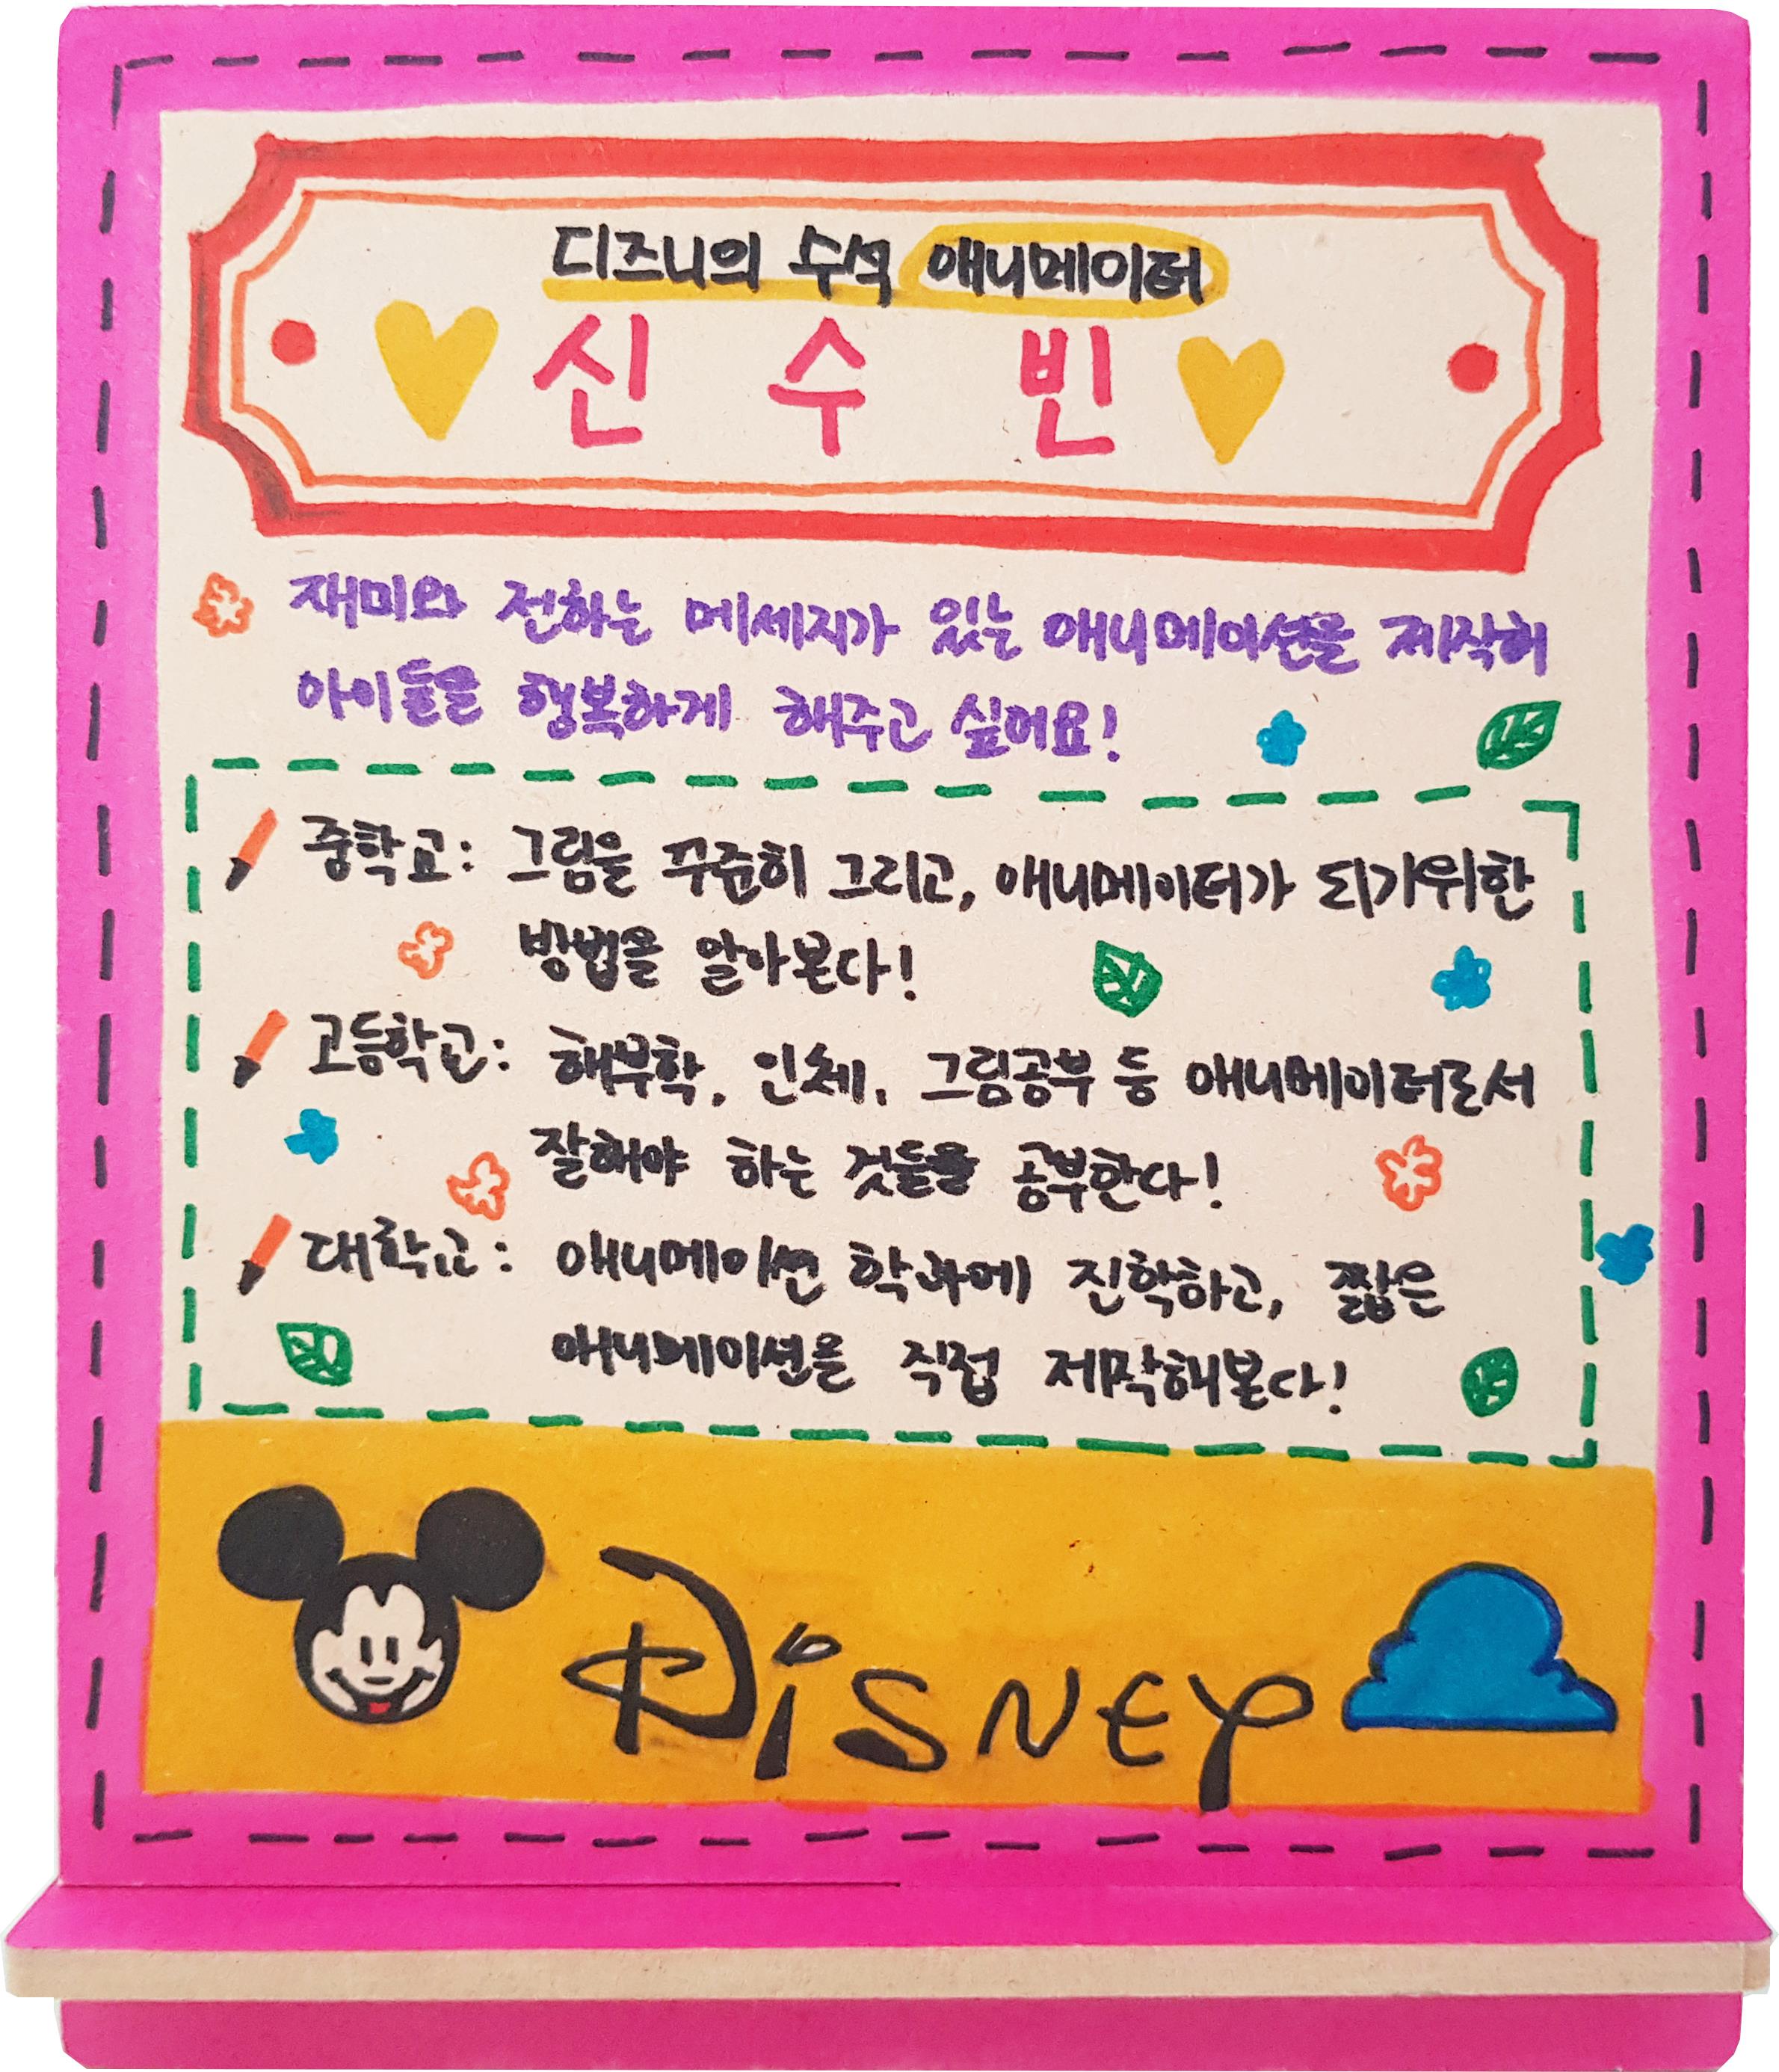 디즈니의 수석 애니메이터
신 수 빈
재미와 전하는 메세지가 있는 애니메이션을 제작해
아이들을 행복하게 해주고 싶어요!
중학교: 그림을 꾸준히 그리고, 애니메이터가 되기위한
방법을 알아본다!
고등학교: 해부학, 인체, 그림공부 등 애니메이터로서
잘해야 하는 것들을 공부한다!
대학교: 애니메이션 학과에 진학하고, 짧은
애니메이션을 직접 제작해본다!
DiSNEY